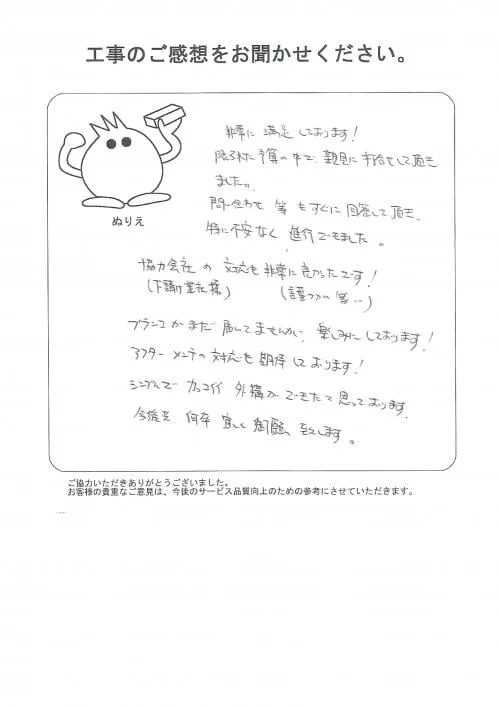 工事のご感想をお聞かせください。
ぬりえ
非常に満足しております!
限られた予算の中で、親身に手治をして頂き
ました。
問い合わせ 等 もすぐに回答して頂き、
特に不安なく 進行できました。
協力会社 の 対応も 非常に良かったです!
(下請け業社様) (謹つかい 等…)
ブランコがまだ届いてませんが、楽しみにしております!
アフターメンテの対応も期待しております!
シンプルで カッコイイ 外構ができたと思っております。
今後共、何卒 宜しく御願い致します。
ご協力いただきありがとうございました。
お客様の貴重なご意見は、今後のサービス品質向上のための参考にさせていただきます。